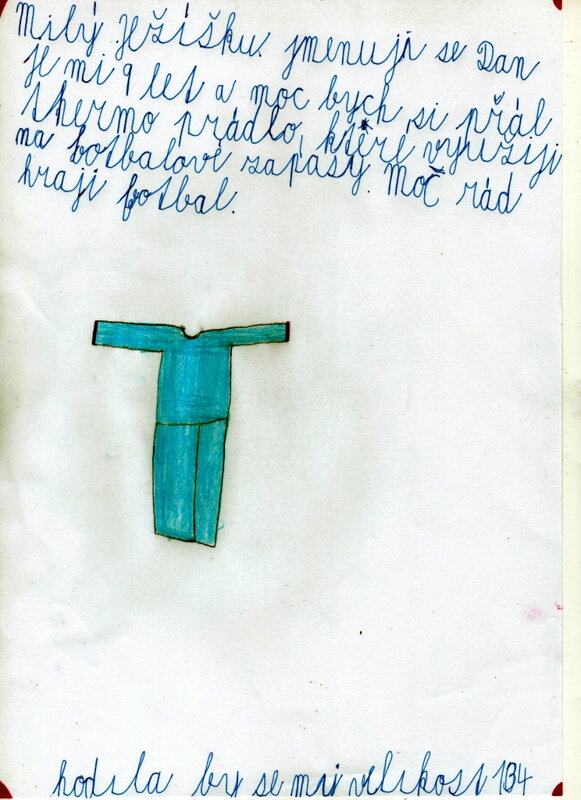 Milý Ježíšku. jmenuji se Dan
je mi 9 let a moc bych si přál
thermo prádlo, které využiji
na botbalové zapásy. Moč rád
hraji fotbal.
hodila by se mi velikost 134